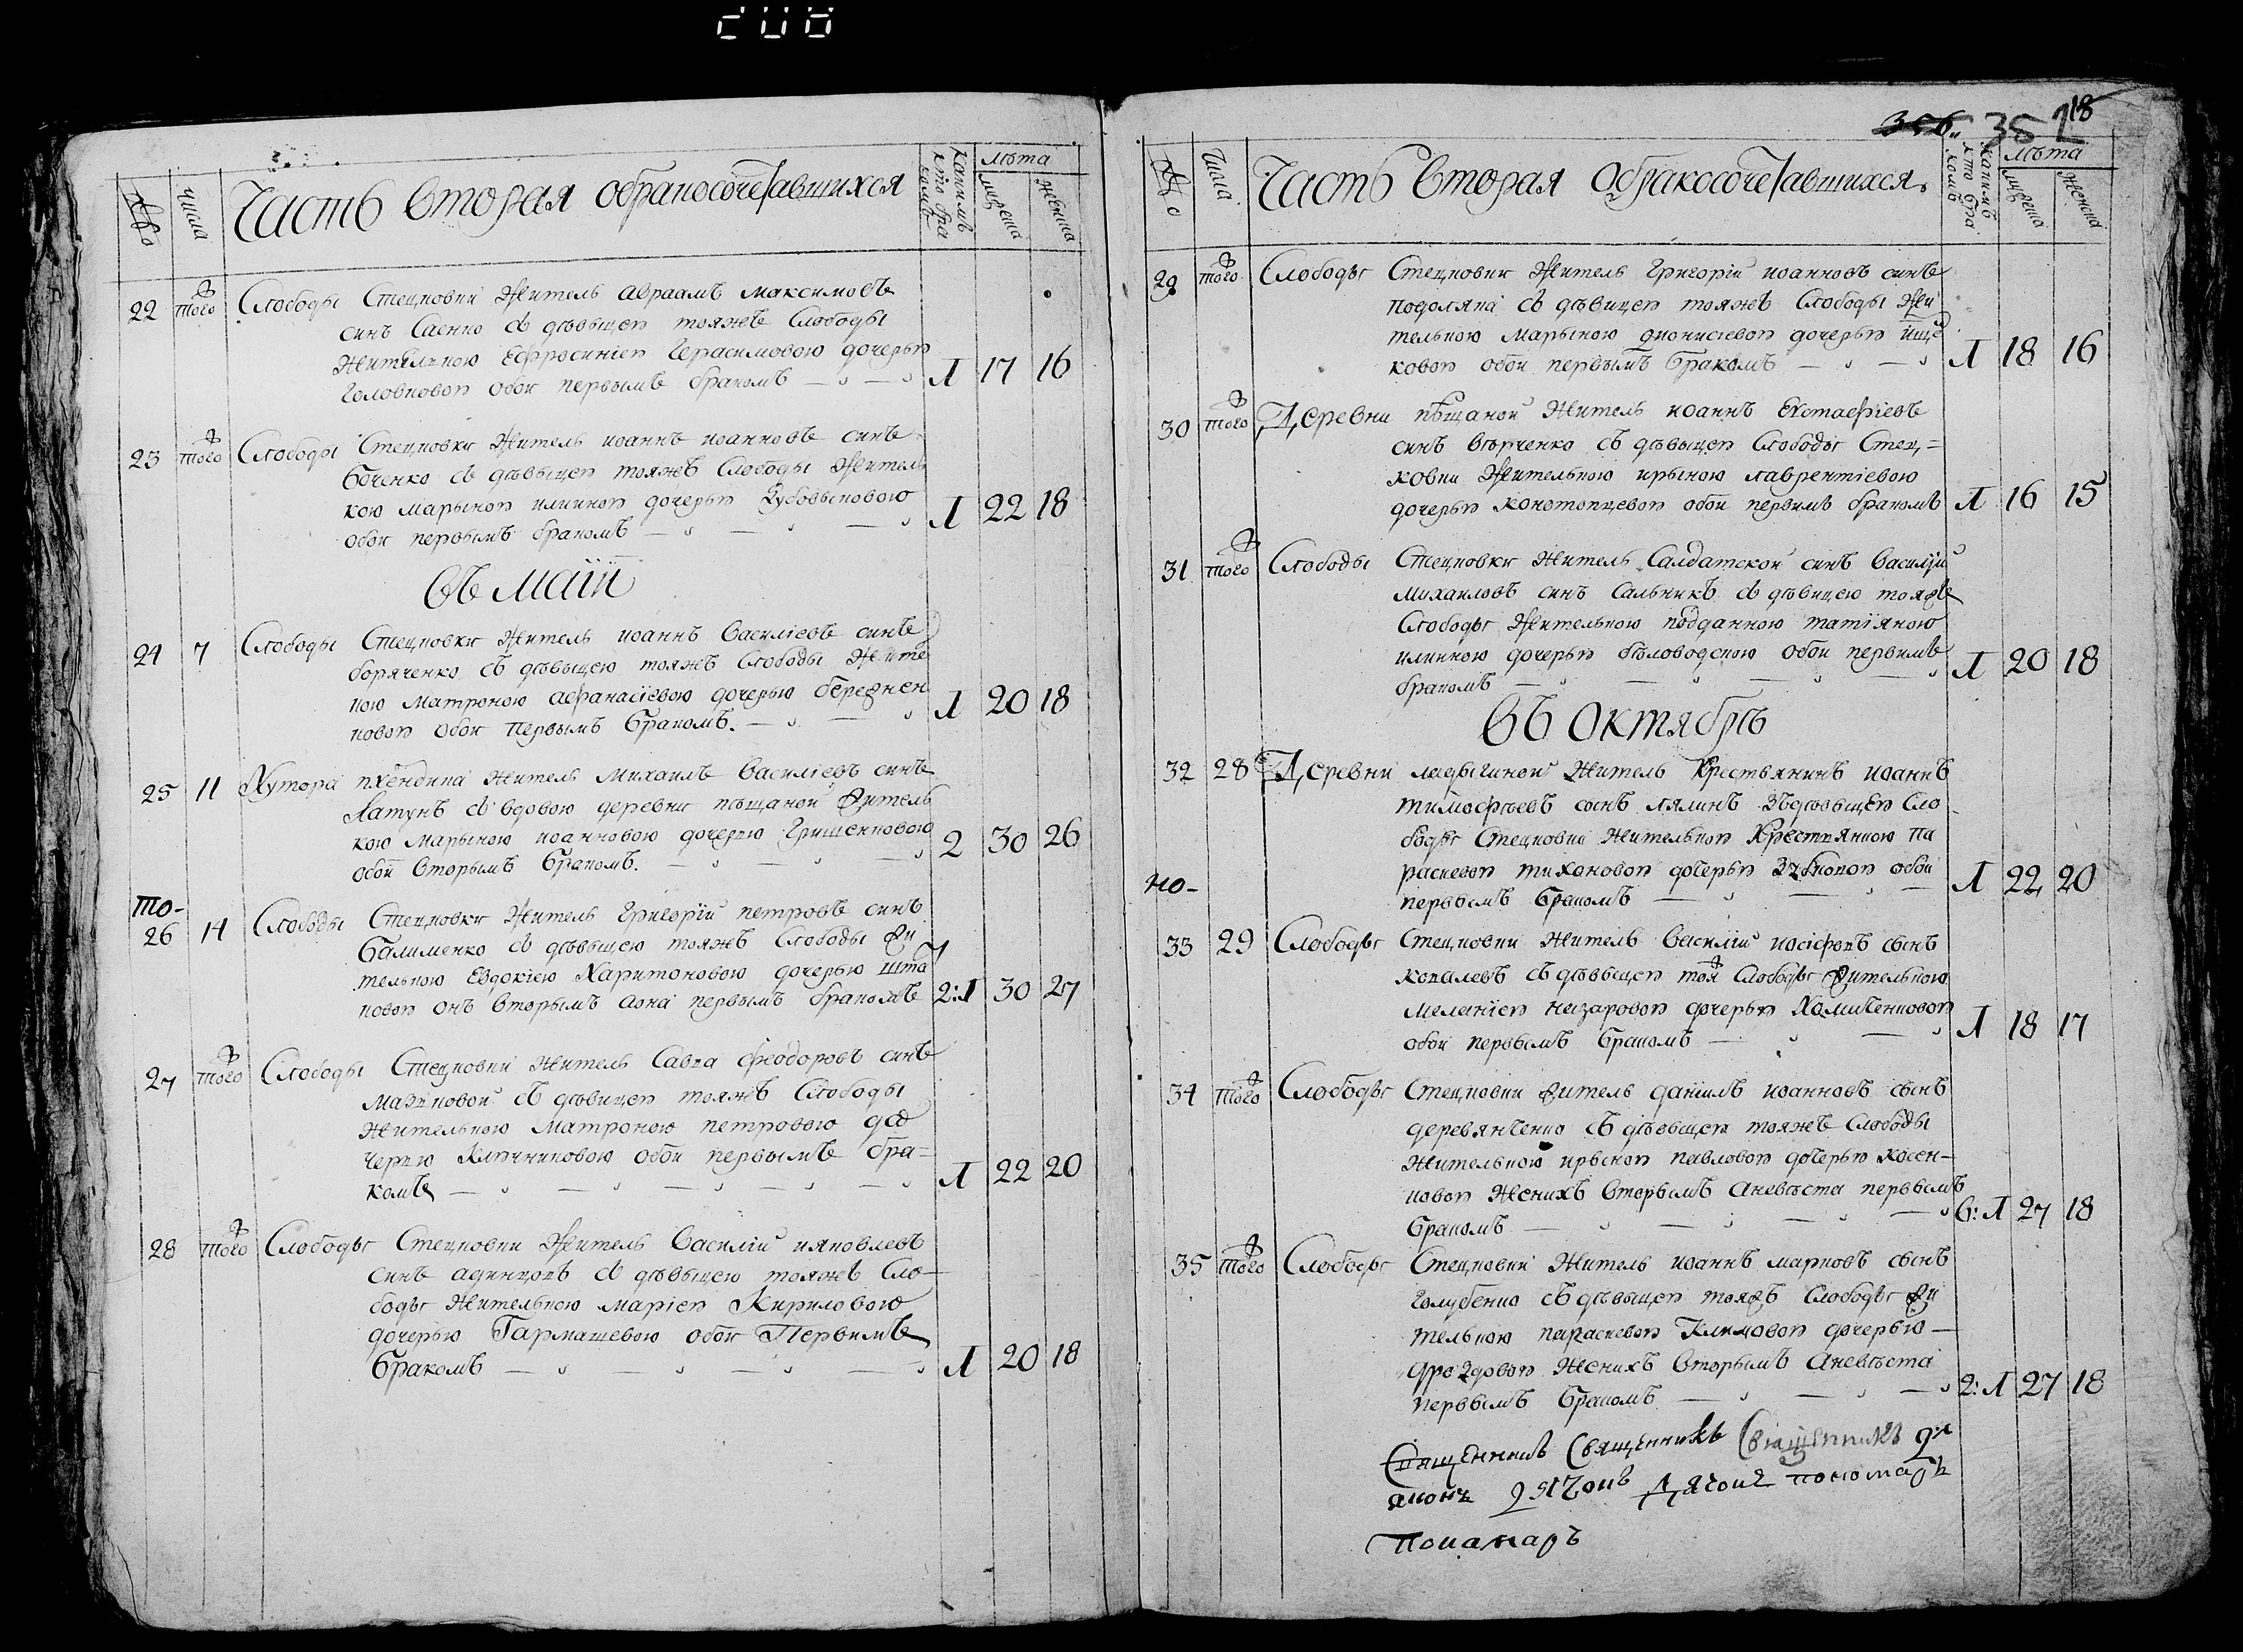 Часть вторая обракосочетавшихся
числа
которимъ кто бракомъ
лѣта
мужеска
женска
22 того ж Слободы Стецковки житель авраамъ максимовъ
синъ Саенко съ дѣвицею тояжъ Слободы
жителкою Ефросиніею Герасимовою дочерью
Головковою обои первымъ бракомъ 1 17 16
23 того ж Слободы Стецковки житель иоаннъ иоанновъ синъ
Боченко съ дѣвыцею тояжъ Слободы житель
кою марыною илиною дочерью
обои первымъ бракомъ 1 22 18
въ маіи
24 7 Слободы Стецковки житель иоаннъ василіевъ синъ
боряченко съ дѣвыцею тояжъ Слободы жите
кою матроною афанасіевою дочерью
ковою обои первымъ бракомъ. 1 20 18
25 11 Хутора житель михаилъ василіевъ синъ
Латунъ съ вдовою деревни пѣщаной житель
кою марыною иоанновою дочерью Грищенковою
обои вторымъ бракомъ. 2 30 26
то-
26 14 Слободы Стецковки житель григорій петровъ синъ
Балименко съ дѣвыцею тояжъ Слободы жи
телкою Евдокіею Харитоновою дочерью
ковою онъ вторымъ аона первымъ бракомъ 2:1 30 27
27 того ж Слободы Стецковки житель Савва феодоровъ синъ
съ дѣвицею тояжъ Слободы
жителкою матроною петровою до
черью Ключниковою обои первымъ бра=
комъ 1 22 20
28 того ж Слободы Стецковки житель василійияковлевъ
синъ одинцовъ съ дѣвыцею тояжъ Сло-
боды жителкою маріею Кириловою
дочерью Гармашевою обои Первимъ
бракомъ 1 20 18
356 351 18
Часть вторая обракосочетавшихся.
числа
которимъ кто бракомъ
лѣта
мужеска
женска
29 того ж Слободы Стецковки житель Григорій иоанновъ синъ
подоляка съ дѣвицею тояжъ Слободы жи
телкою марыною дионисіевою дочерью
ковою обои первымъ бракомъ 1 18 16
30 того ж Деревни пѣщаной житель иоаннъ Евстафіевъ
синъ съ дѣвыцею Слободы Стец=
ковки жителкою ирыною лаврентіевою
дочерью конотопцевою обои первимъ бракомъ 1 16 15
31 того ж Слободы Стецковки житель Салдатской синъ Василій
михаиловъ синъ Сальникъ съ дѣвицею тояжъ
Слободы жителкою подданною татіяною
илиною дочерью бѣловодскою обои первимъ
бракомъ 1 20 18
въ октябрѣ
32 28 Деревни ладыгиной житель крестьянинъ иоаннъ
тимофѣевъ сынъ лялинъ зъдѣвыцею Сло
боды Стецковки жителкою крестьянкою па
раскевою тихоновою дочерью обои
но-
первымъ бракомъ 1 22 20
33 29 Слободы Стецковки житель василій иосіфовъ сынъ
ковалевъ съ дѣвыцею тояж Слободы жителкою
меланіею назаровою дочерью
обои первымъ бракомъ 1 18 17
34 того ж Слободы Стецковки житель даніилъ иоанновъ сынъ
деревянченко съ дѣвыцею тояжъ Слободы
жителкою ирыною павловою дочерью косен-
ковою женихъ вторымъ аневѣста первымъ
бракомъ в:1 27 18
35 того ж Слободы Стецковки житель иоаннъ марковъ сынъ
голубенко съ дѣвыцею тояжъ Слободы жи
телкою параскевою Климовою дочерью
дроздовою женихъ вторымъ аневѣста
первымъ бракомъ 2:1 27 18
Священникъ Священникъ Священникъ ді
аконъ дячокъ Дячокъ пономаръ
Понамаръ